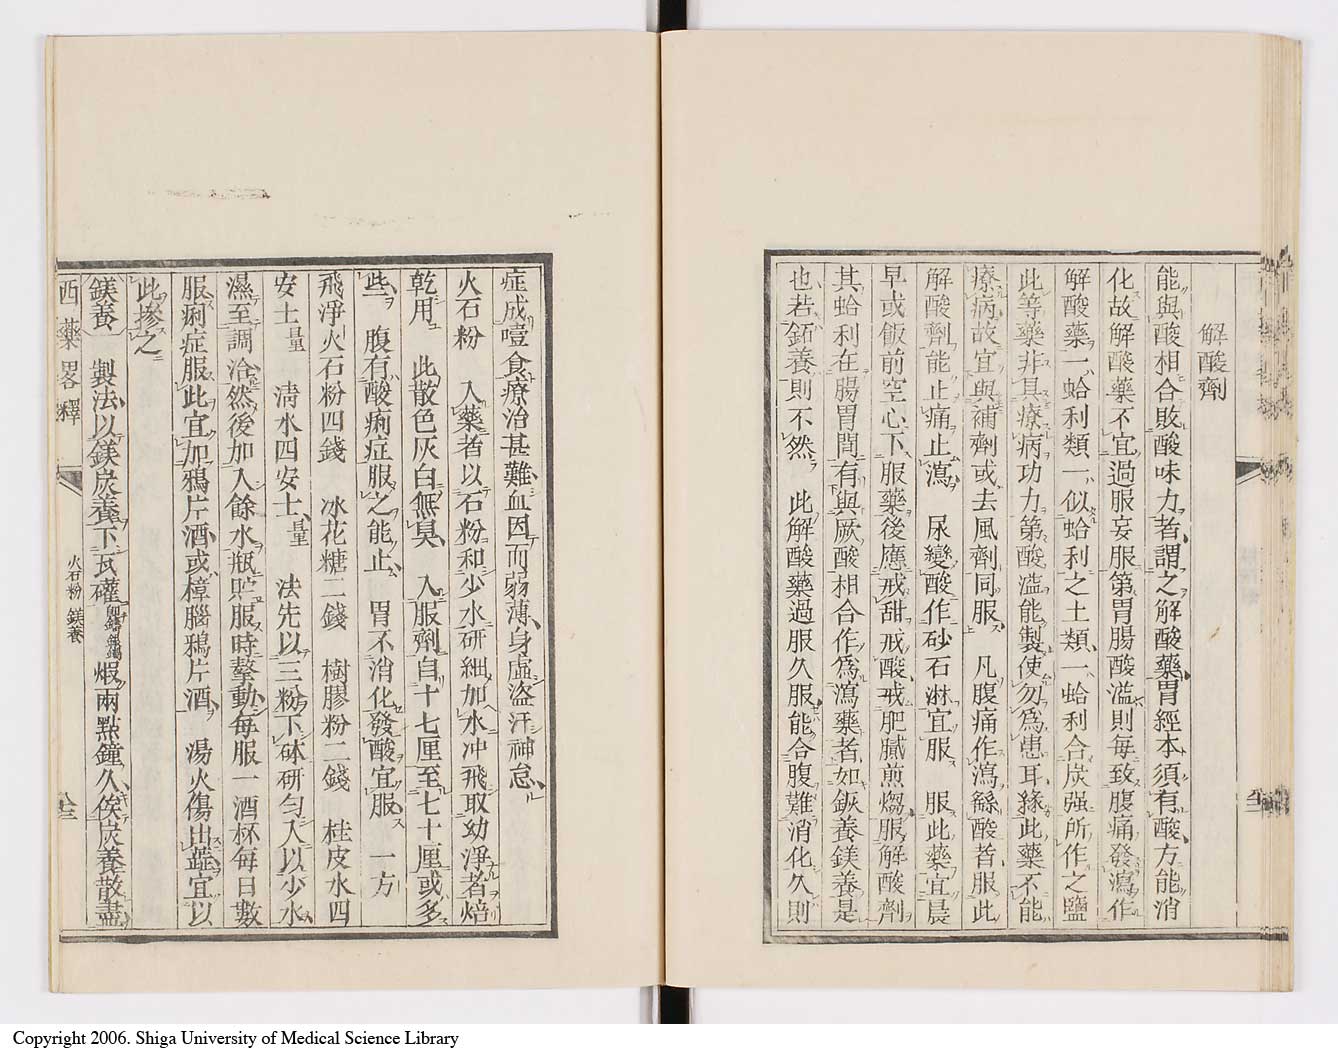 解酸劑
能與酸相合敗酸味力者謂之解酸藥胃經本須有酸方能消
化故解酸藥不宜過服妄服第胃腸酸溢則每致腹痛發瀉作
解酸藥一蛤利類一似蛤利之土類一蛤利合炭强所作之鹽
此等藥非具療病功力第酸溢能製使勿爲患耳緣此藥不能
療病故宜與補劑或去風劑同服 凡腹痛作瀉繇酸者服此
解酸劑能止痛止瀉 尿變酸作砂石淋宜服 服此藥宜晨
早或飯前空心下服藥後應戒甜戒酸戒肥膩煎煼服解酸劑
其蛤利在腸胃間有與厥酸相合作爲瀉藥者如鈑養鎂養是
也若鉐養則不然 此解酸藥過服久服能合腹難消化久則
症成噎食療治甚難血因而弱薄身虛盜汗神怠
火石粉 入藥者以石粉和少水研細加水冲飛取幼淨者焙
乾用 此散色灰白無臭 入服劑自十七厘至七十厘或多
些 腹有酸痢症服之能止 胃不消化發酸宜服 一方
飛淨火石粉四錢 冰花糖二錢 樹膠粉二錢 桂皮水四
安士量 清水四安士量 法先以三粉下砵研勻入以少水
濕至調洽然後加入餘水瓶貯服時拏動每服一酒杯每日數
服痢症服此宜加鴉片酒或樟腦鴉片酒 湯火傷出𧖅宜以
此摻之
鎂養 製法以鎂炭養下瓦礶煆兩點鐘久俟炭養散盡
西藥畧釋
火石粉 鎂養